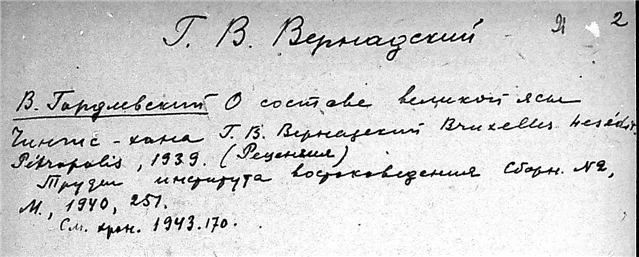 Г. В. Вернадский Я 2
В. Гордлевский О составе великой ясы
Чингис-хана Г. В. Вернадский Bruxelles
Petropolis, 1939. (Рецензия)
Труды института востоковедения Сборн. №2,
М., 1940, 251.
См. хрон. 1943.170.